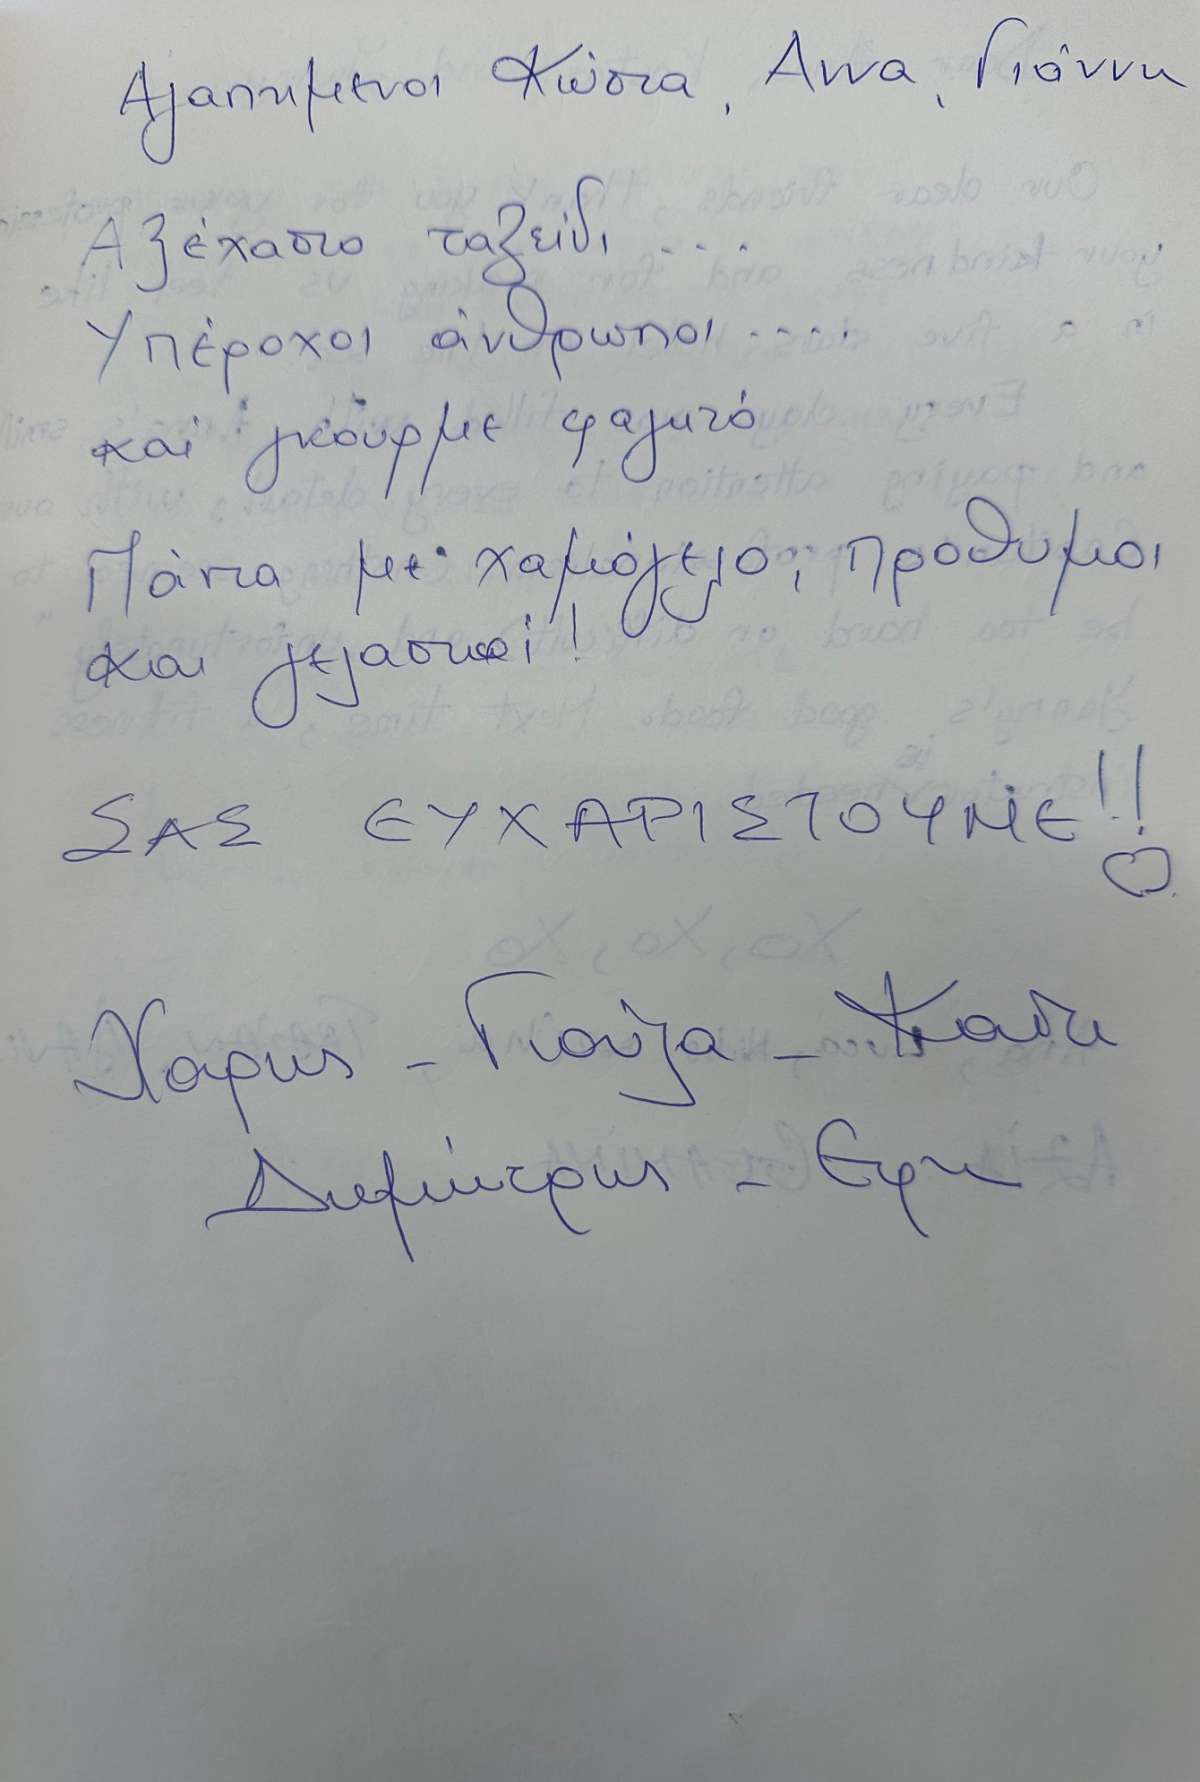 Αγαπημενοι Κώστα, Αννα, Γιάννη
Αξέχαστο ταξείδι ...
Υπέροχοι άνθρωποι ....
και γκουρμε φαγητό
Πάντα με χαμόγελο, προθυμοι
και γελαστοί!
ΣΑΣ ΕΥΧΑΡΙΣΤΟΥΜΕ!!
Χαρης - Γιούλα -
Δημήτρης - Εφη